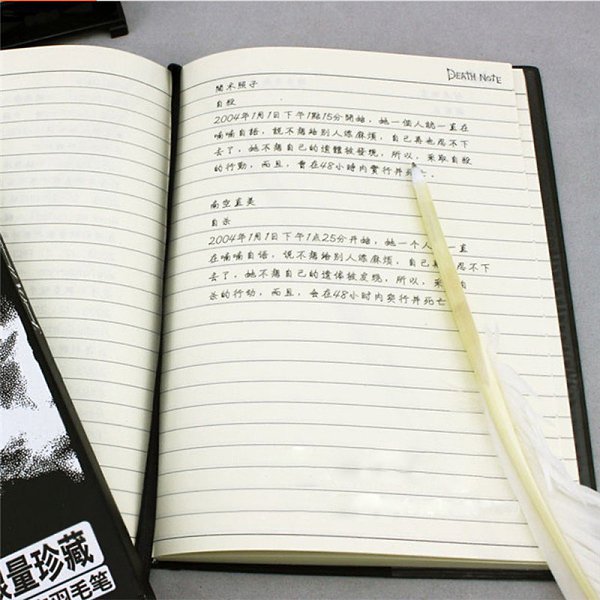 DEATH NOTE
間木照子
自殺
2004年1月1日下午1點15分開始，她一個人就一直在
喃喃自語，說不想給別人添麻煩，自己再也忍不下
去了，她不想自己的遺體被發現，所以，采取自殺
的行動，而且，會在48小時內實行并死亡。
南空直美
自杀
2004年1月1日下午1点25分开始，她一个人一直
在喃喃自语，说不想给别人添麻烦，自己再忍不下
去了，她不想自己的遗体被发现，所以，采自
杀的行动，而且，会在48小时内实行并死亡
限量珍藏
羽毛笔